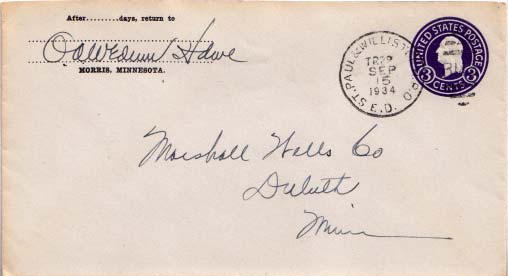 After.........days, return to
MORRIS, MINNESOTA.
ST. PAUL & WILLIST R.P.O.
TR29
SEP
15
1934
E.D.
UNITED STATES POSTAGE
3 3
CENTS
Marshall Wells Co
Duluth
Minn